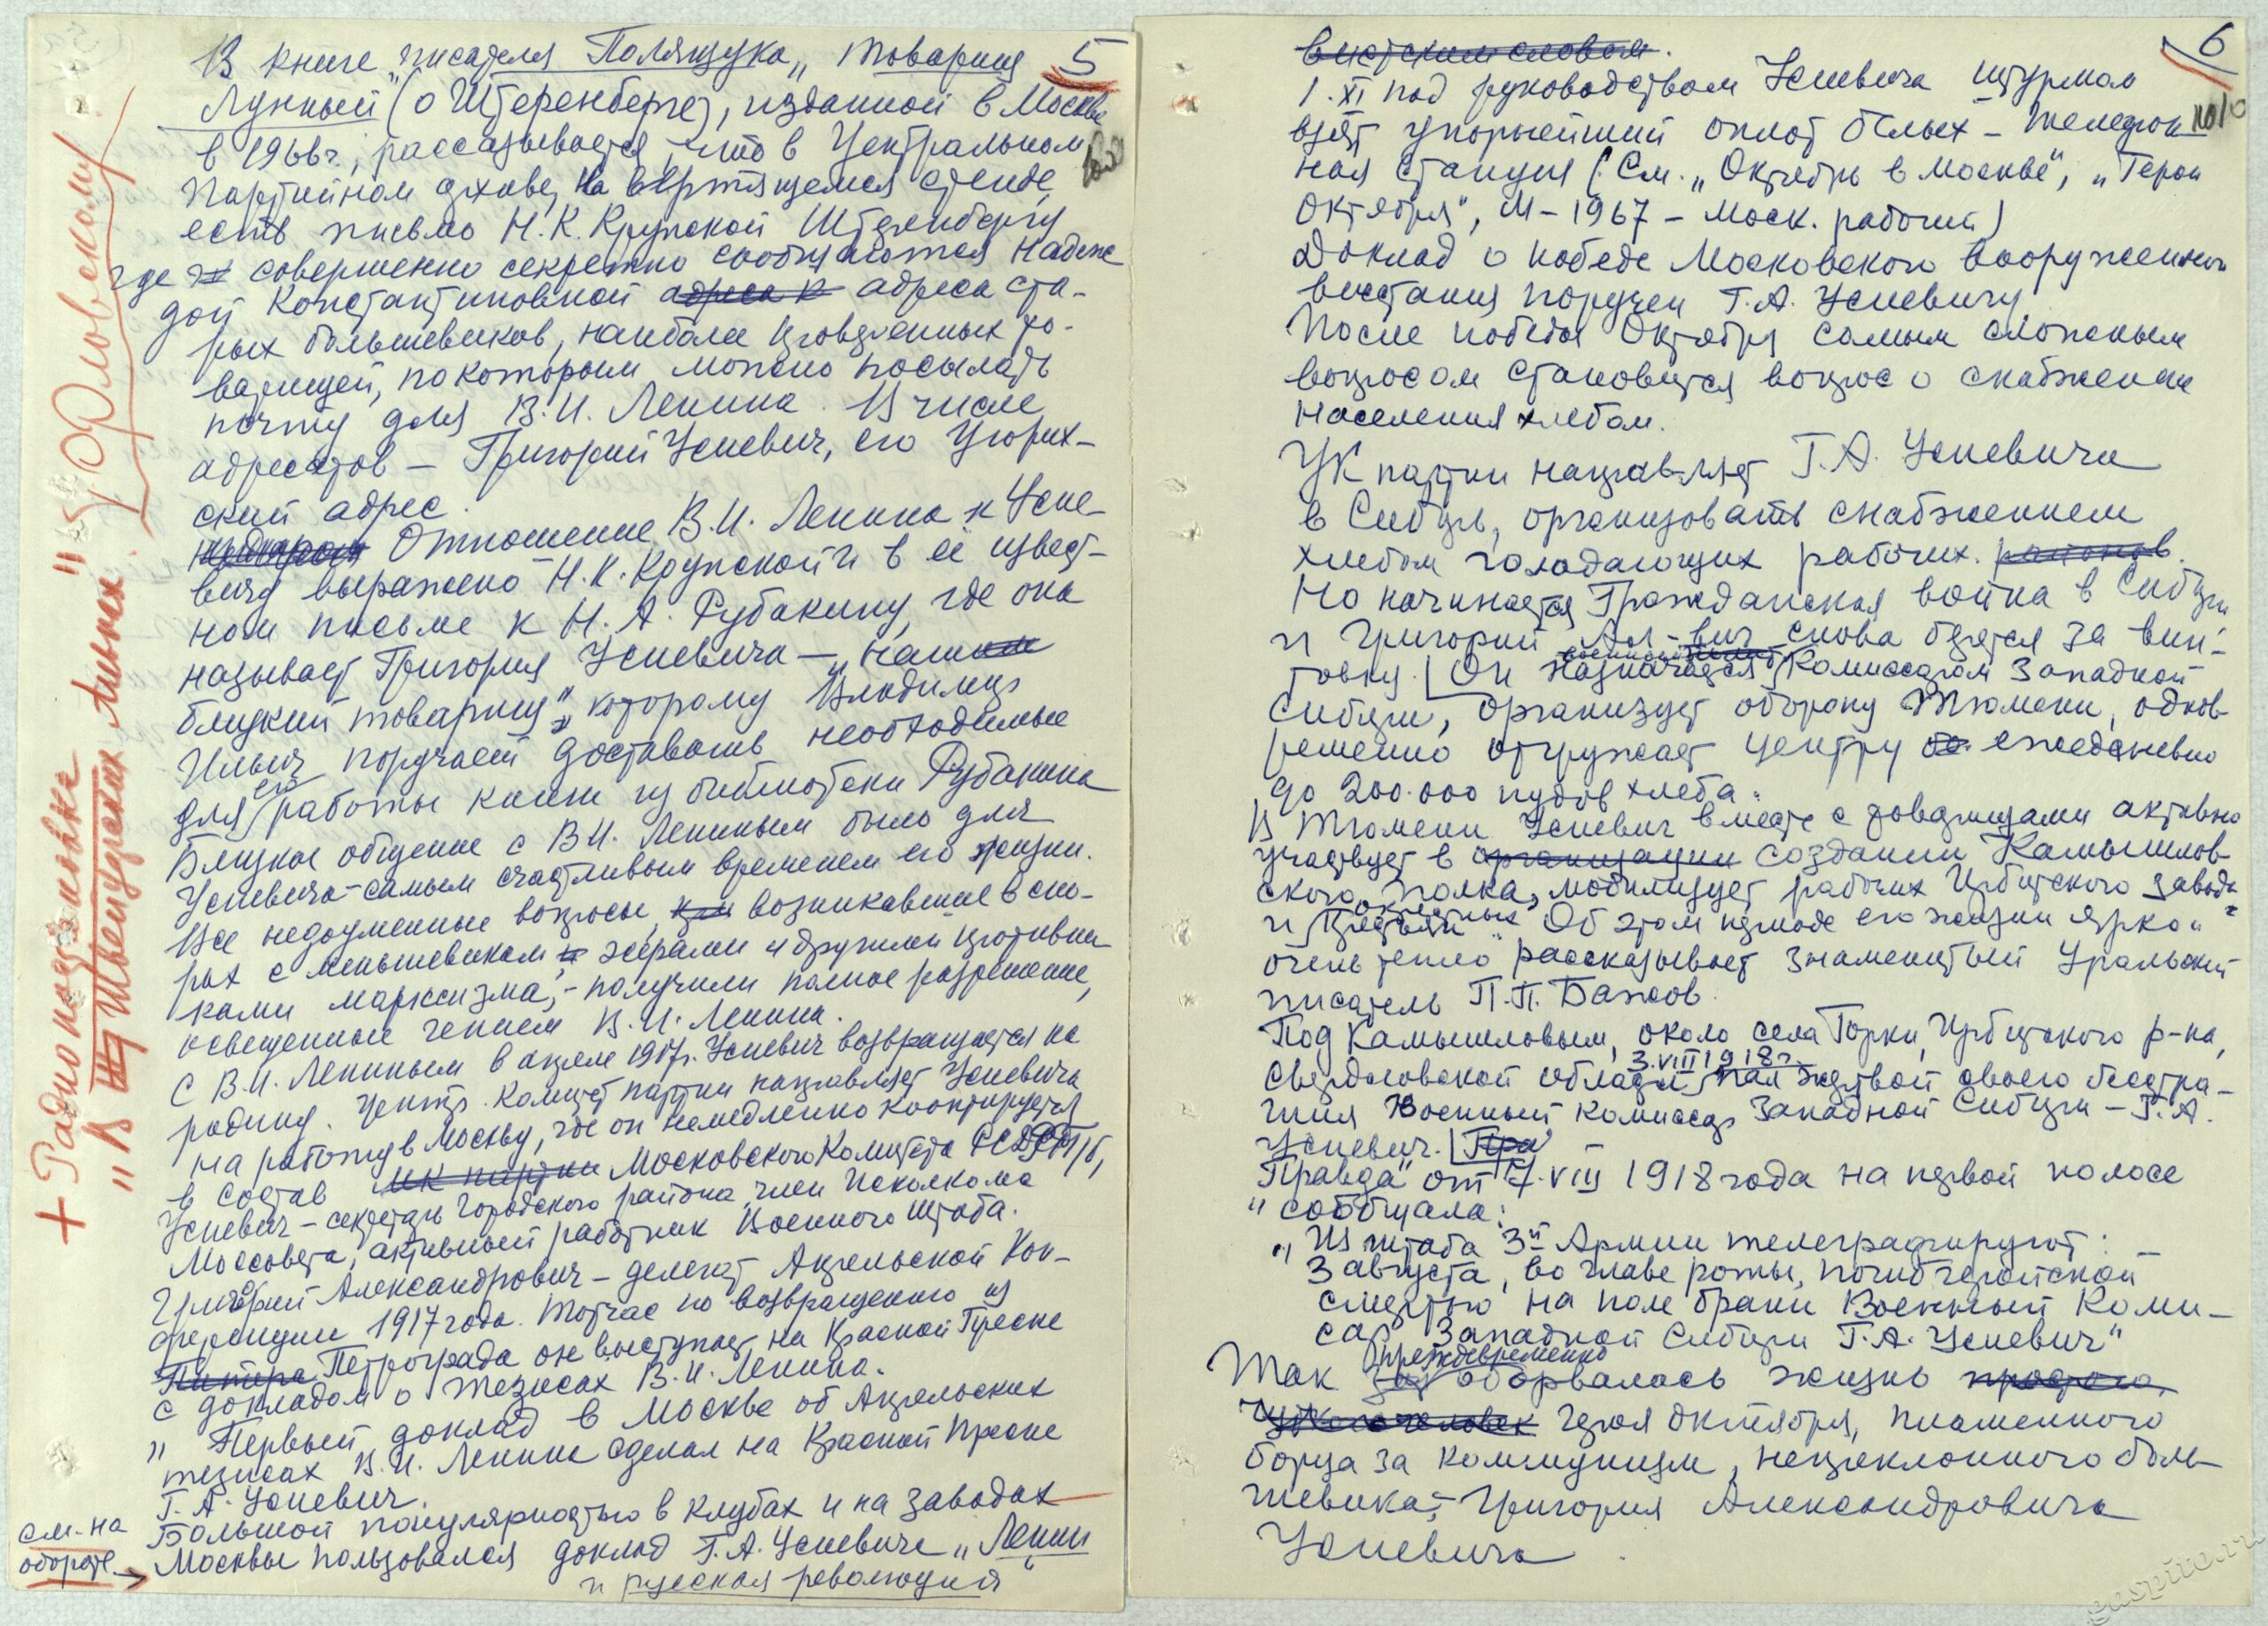 5
В книге писателя Полящука „Товарищ
Лунный" (о Штеренберге), изданной в Москве
в 1966г., рассказывается, что в Центральном
Партийном архиве, на вертящемся стенде,
есть письмо Н.К. Крупской Штеренбергу
где совершенно секретно сообщаются Надеж
дой Константиновной адреса к адреса ста-
рых большевиков, наиболее проверенных то-
варищей, по которым можно посылать
почту для В.И. Ленина. В числе
адресатов – Григорий Усиевич, его Цюрих-
ский адрес.
Отношение В.И. Ленина к Усие-
вичу выражено Н.К. Крупской и в её извест-
ном письме к Н.А. Рубакину, где она
называет Григория Усиевича – „наш
близкий товарищ", которому Владимир
Ильич поручает доставать необходимые
для его работы книги из библиотеки Рубакина
Близкое общение с В.И. Лениным было для
Усиевича – самым счастливым временем его жизни.
Все недоуменные вопросы, возникавшие в спо-
рах с меньшевиками, эсерами и другими противни
ками марксизма, – получили полное разрешение,
освещенные гением В.И. Ленина.
С В.И. Лениным в апреле 1917г. Усиевич возвращается на
родину. Центр. Комитет партии направляет Усиевича
на работу в Москву, где он немедленно кооптируется
в состав МК партии Московского Комитета РСДРП/б,
Усиевич – секретарь Городского района, член Исполкома
Моссовета, активный работник Военного штаба.
Григорий Александрович – делегат Апрельской Кон-
ференции 1917 года. Тотчас по возвращению из
Питера Петрограда он выступает на Красной Пресне
с докладом о тезисах В.И. Ленина.
„ Первый доклад в Москве об Апрельских
тезисах В.И. Ленина сделал на Красной Пресне
Г.А. Усиевич.
Большой популярностью в клубах и на заводах
Москвы пользовался доклад Г.А. Усиевича „Ленин
и русская революция"
см. на
обороте →
+ Радио
„В Швейцарских Альпах"
Орловскому!
6
1.XI под руководством Усиевича штурмом
взят упорнейший оплот белых – Телефон
ная станция (См. „Октябрь в Москве", „Герои
Октября", М – 1967 – Моск. рабочий)
Доклад о победе Московского вооруженного
восстания поручен Г.А. Усиевичу
После победы Октября самым сложным
вопросом становится вопрос о снабжении
населения хлебом.
ЦК партии направляет Г.А. Усиевича
в Сибирь, организовать снабжением
хлебом голодающих рабочих. районов.
Но начинается Гражданская война в Сибири
и Григорий Ал-вич снова берется за вин-
товку. Он назначается Комиссаром Западной
Сибири, организует оборону Тюмени, однов-
ременно отгружает центру ежедневно
до 200.000 пудов хлеба.
В Тюмени Усиевич вместе с товарищами активно
участвует в организации создании Камышлов-
ского полка, мобилизует рабочих Ирбитского завода
и окрестных крестьян. Об этом периоде его жизни ярко и
очень тепло рассказывает знаменитый Уральский
писатель П.П. Бажов.
Под Камышловым, около села Горки, Ирбитского р-на,
Свердловской области, 3.VIII 1918г. пал жертвой своего бесстра-
шия Военный комиссар Западной Сибири – Г.А.
Усиевич. Пра
„Правда" от 7.VIII 1918 года на первой полосе
сообщала:
„Из штаба 3й Армии телеграфируют: –
3 августа, во главе роты, погиб геройской
смертью на поле брани Военный Коми-
сар Западной Сибири Г.А. Усиевич"
Так преждевременно оборвалась жизнь
героя Октября, пламенного
борца за коммунизм, непреклонного боль-
шевика – Григория Александровича
Усиевича.
gaspito.ru